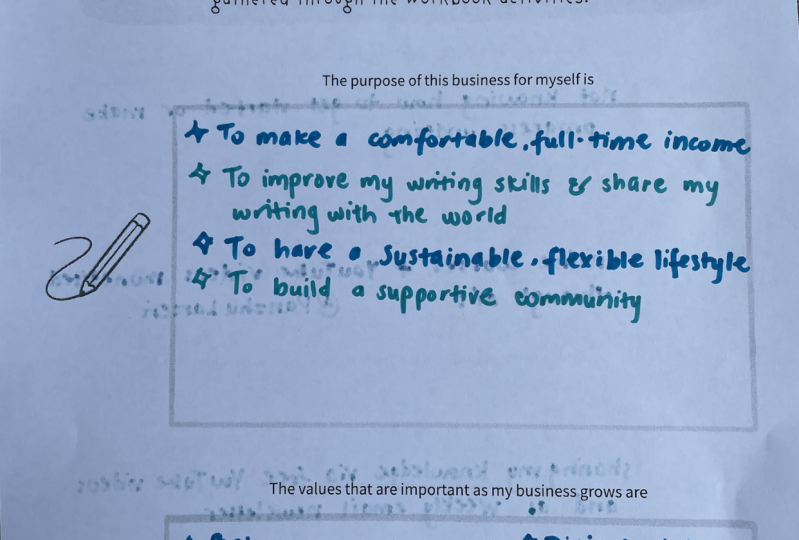 gathered through the workbook activities.
The purpose of this business for myself is
To make a comfortable, full-time income
To improve my writing skills & share my
writing with the world
To have a sustainable, flexible lifestyle
To build a supportive community
sharing my knowledge via free YouTube videos
The values that are important as my business grows are
and a weekly email newsletter